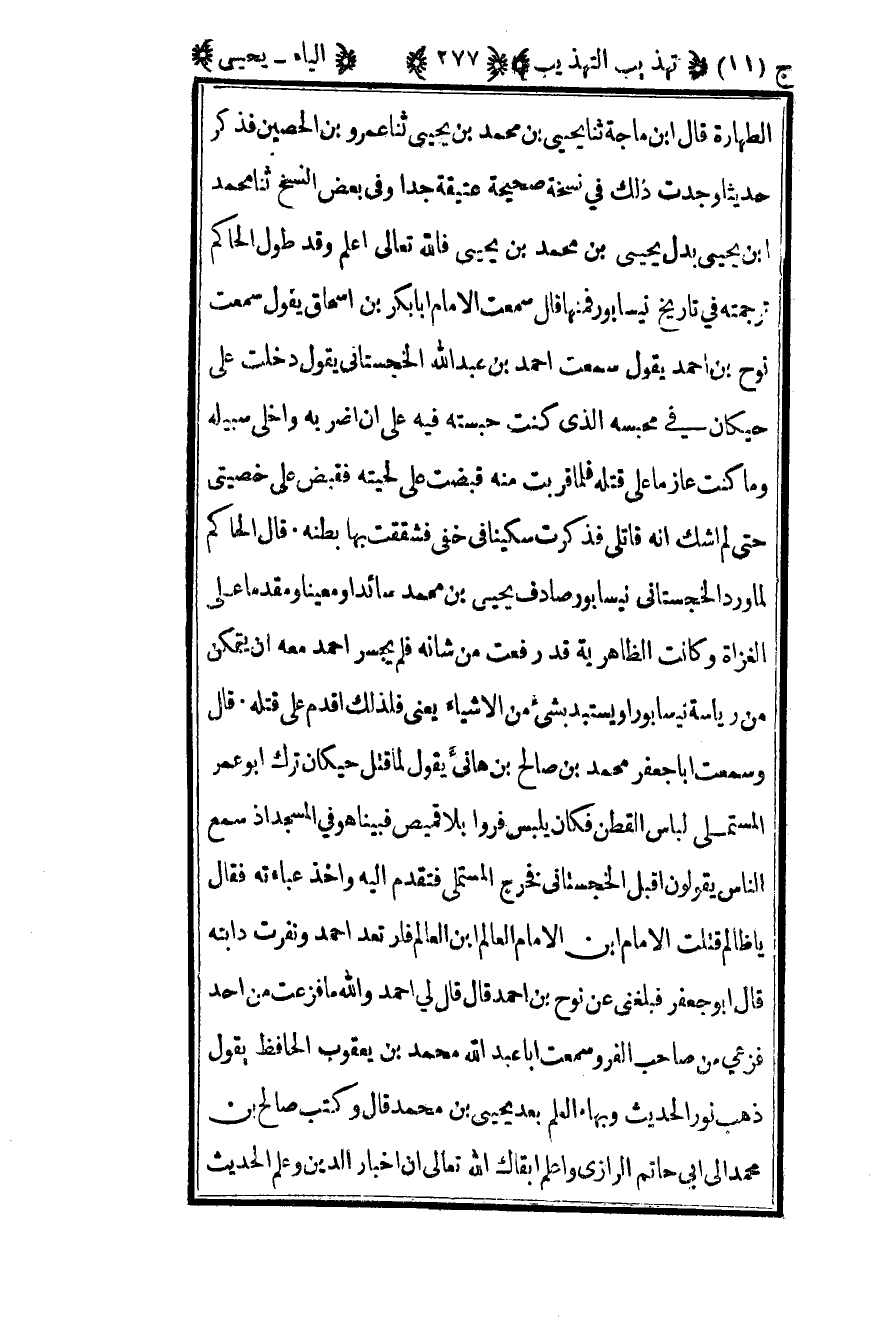 ج (١١) تهذيب التهذيب ٢٧٧ الياء - يحيى
الطهارة قال ابن ماجة ثنا يحيى بن محمد بن يحيى ثنا عمرو بن الحصين فذكر
حديثا وجدت ذلك في نسخة صحيحة عتيقة جدا وفى بعض النسخ ثنا محمد
ابن يحيى بدل يحيى بن محمد بن يحيى فالله تعالى اعلم وقد طول الحاكم
ترجمته في تاريخ نيسابور فمنها قال سمعت الامام ابا بكر بن اسحاق يقول سمعت
نوح بن احمد يقول سمعت احمد بن عبد الله الخجستانى يقول دخلت على
حيكان في محبسه الذى كنت حبسته فيه على ان اضربه واخلى سبيله
وما كنت عازما على قتله فلما قربت منه قبضت على لحيته فقبض على خصيتى
حتى لم اشك انه قاتلى فذكرت سكينا فى خفى فشققت بها بطنه٠ قال الحاكم
لما ورد الخجستانى نيسابور صادف يحيى بن محمد سائدا ومعينا ومقدما على
الغزاة وكانت الظاهرية قد رفعت من شانه فلم يجسر احمد معه ان يتمكن
من رياسة نيسابور او يستبد بشئ من الاشياء يعنى فلذلك اقدم على قتله٠ قال
وسمعت ابا جعفر محمد بن صالح بن هانئ يقول لما قتل حيكان ترك ابو عمر
المستملى لباس القطن فكان يلبس فروا بلا قميص فبينا هو في المسجد اذ سمع
الناس يقولون اقبل الخجستانى فخرج المستملى فتقدم اليه واخذ عباءته فقال
يا ظالم قتلت الامام ابن الامام العالم ابن العالم فارتعد احمد ونفرت دابته
قال ابو جعفر فبلغنى عن نوح بن احمد قال قال لي احمد والله ما فزعت من احد
فزعي من صاحب الفرو وسمعت ابا عبد الله محمد بن يعقوب الحافظ يقول
ذهب نور الحديث وبهاء العلم بعد يحيى بن محمد قال وكتب صالح بن
محمد الى ابي حاتم الرازى واعلم ابقاك الله تعالى ان اخبار الدين وعلم الحديث